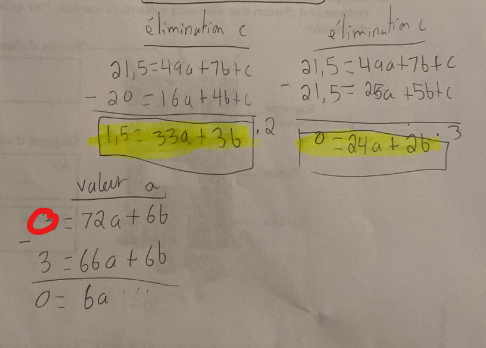 élimination c
21,5=49a+7b+c
- 20 = 16a+4b+c
1,5 = 33a+3b .2
élimination c
21,5=49a+7b+c
- 21,5= 25a+5b+c
0 = 24a + 2b .3
valeur a
= 72a + 6b
- 3 = 66a + 6b
0 = 6a